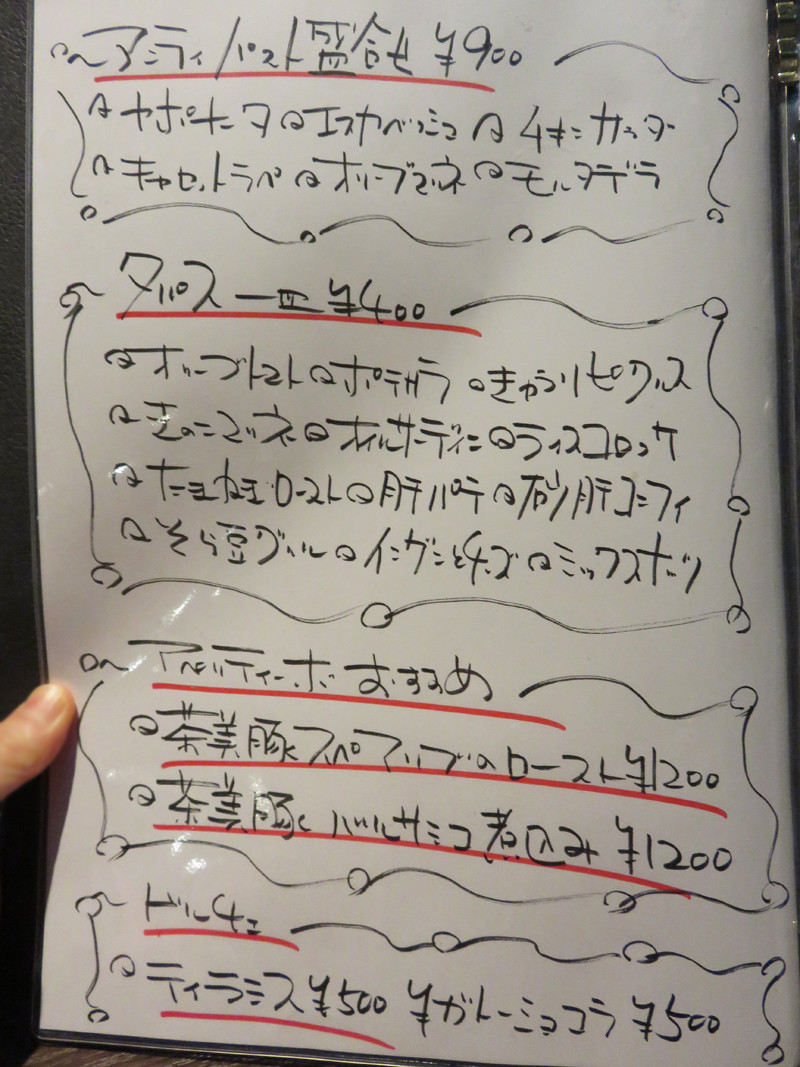 アンティパスト盛合せ ¥900
カポナータ エスカベッシュ チキンカッター
キャロットラペ オリーブマリネ モルタデラ
タパス 一皿 ¥400
オリーブトマト ポテサラ きゅうりピクルス
きのこマリネ オイルサーディン ライスコロッケ
たまねぎロースト 肝パテ 砂肝コンフィ
そら豆グリル インゲンとチーズ ミックスナッツ
アペリティーボ おすすめ
茶美豚スペアリブのロースト ¥1200
茶美豚バルサミコ煮込み ¥1200
ドルチェ
ティラミス ¥500 ¥ガトーショコラ ¥500